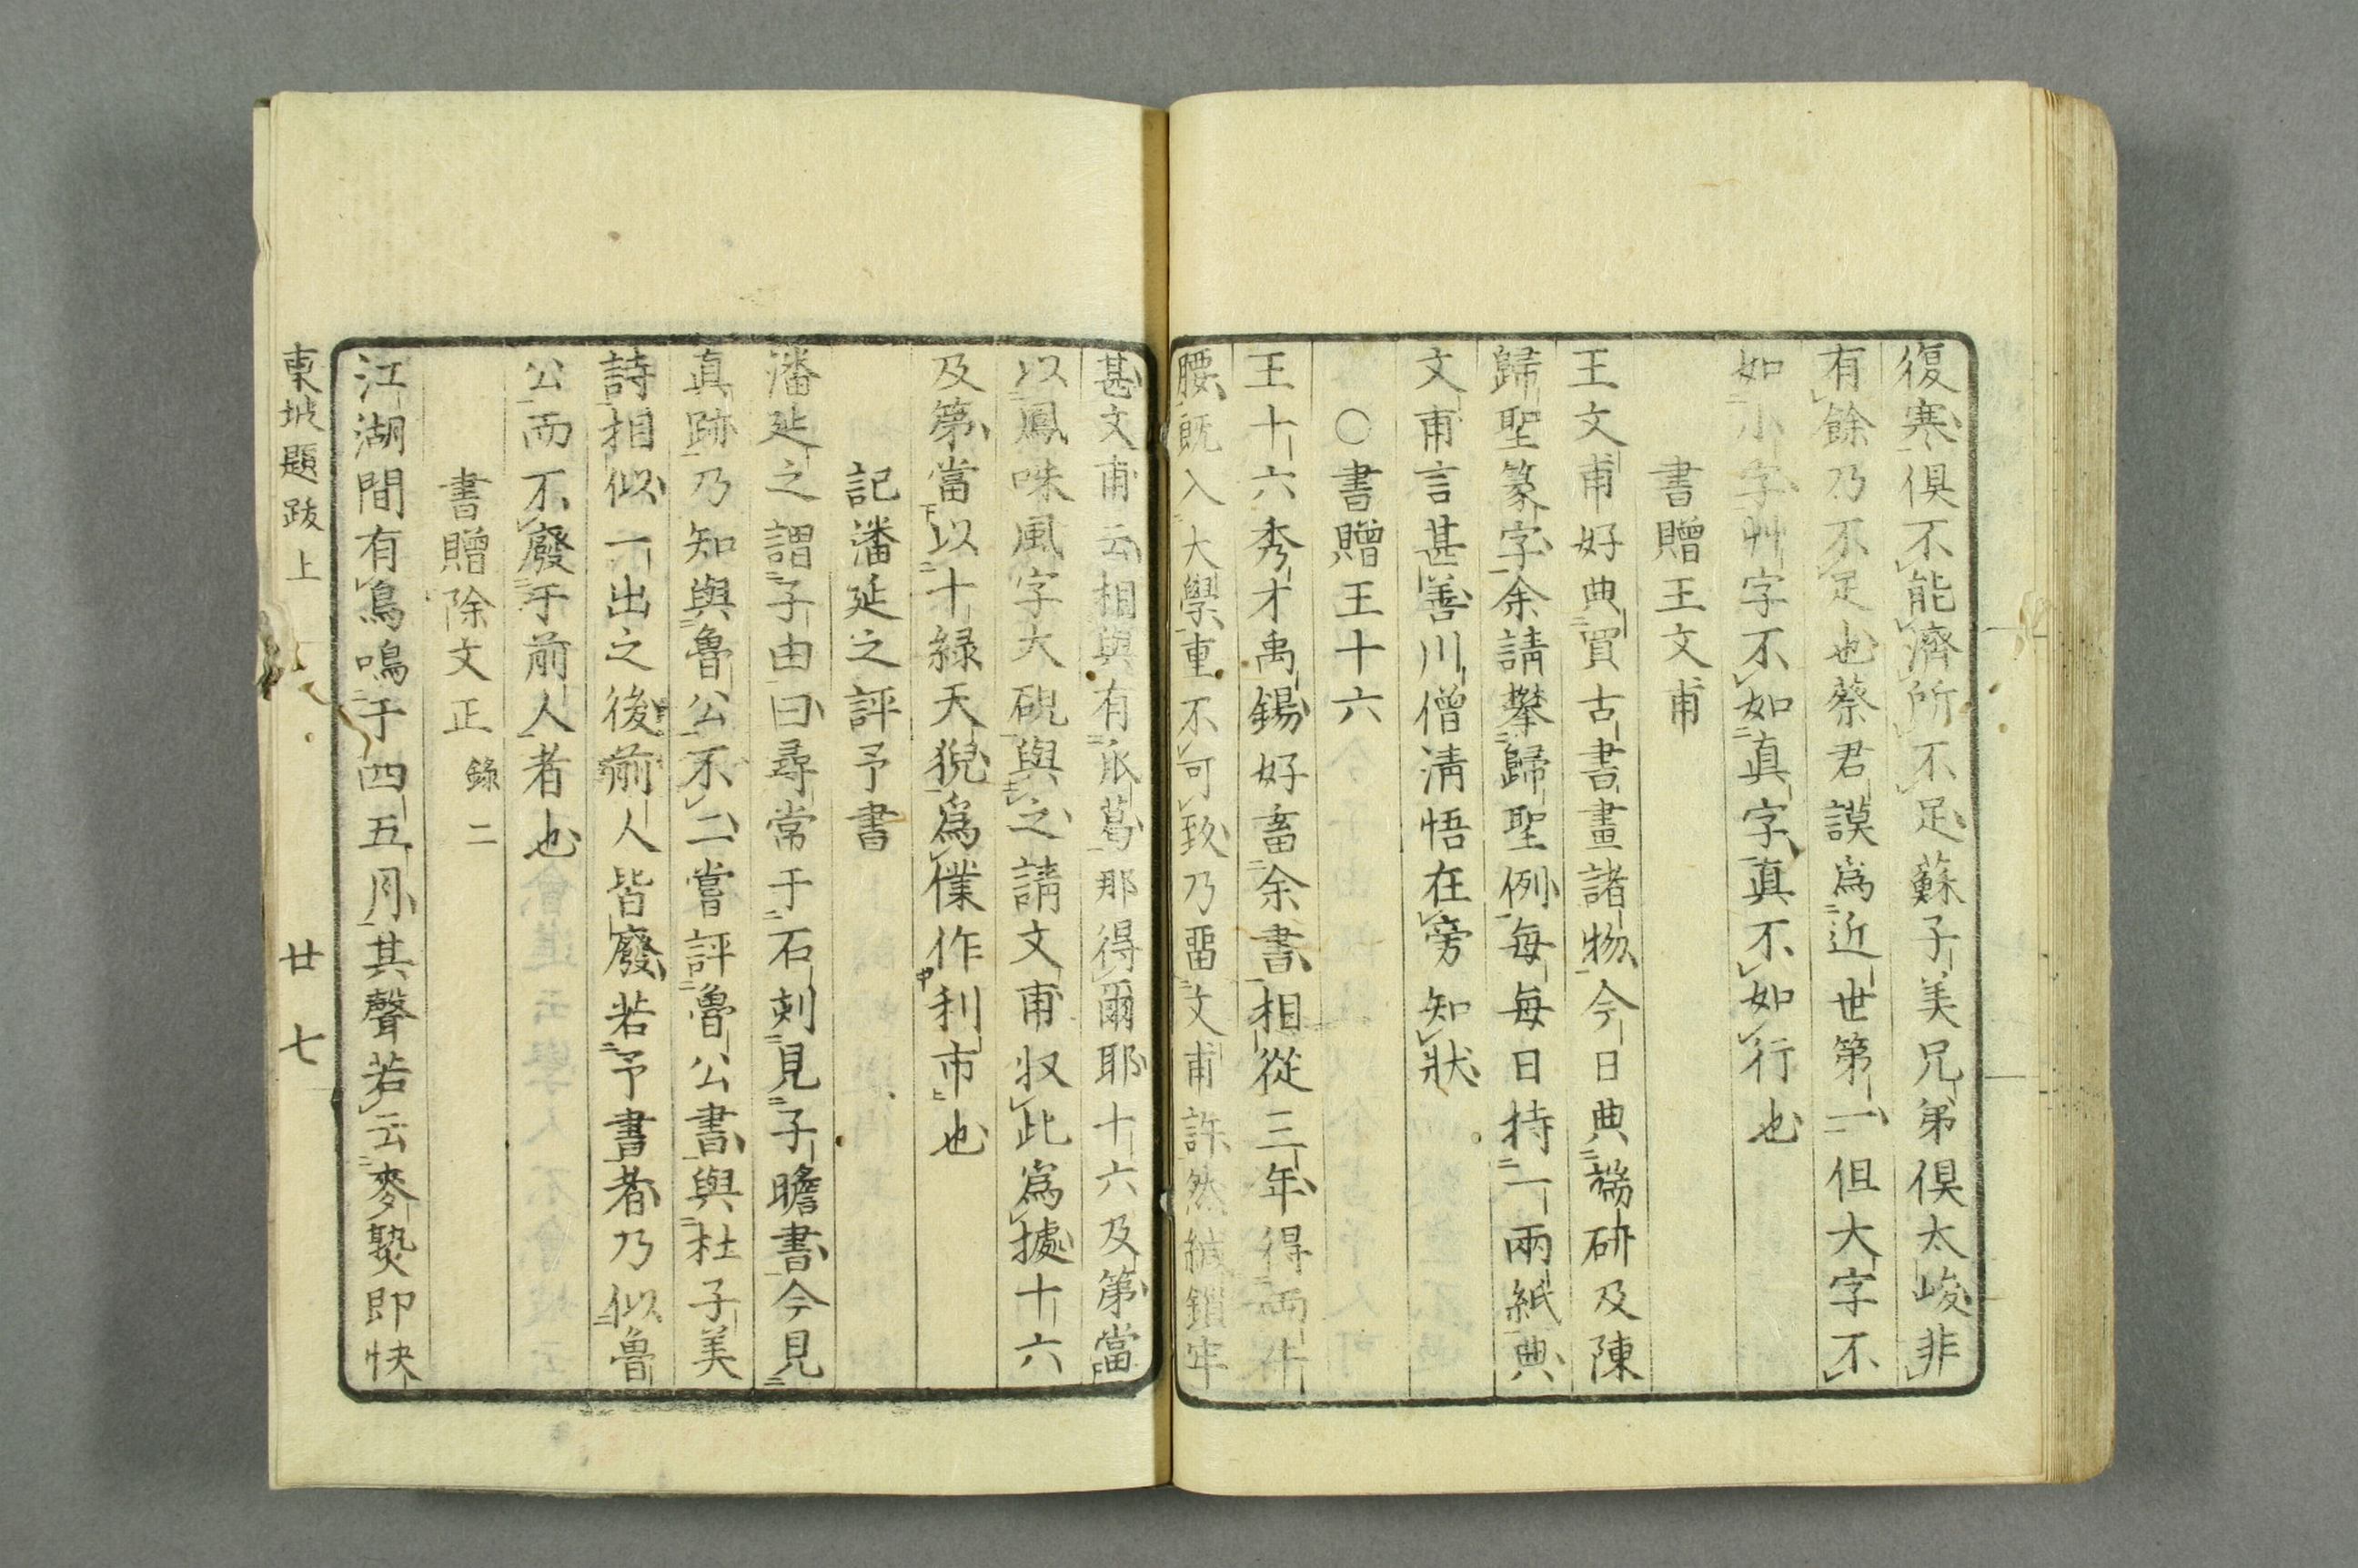 復寒俱不能濟所不足蘇子美兄弟俱太峻非
有餘乃不足也蔡君謨爲近世第一但大字不
如小字艸字不如真字真不如行也
書贈王文甫
王文甫好典買古書畫諸物今日典端硏及陳
歸聖篆字余請攀歸聖例每每日持一兩紙典
文甫言甚善川僧淸悟在旁知狀
○書贈王十六
王十六秀才禹錫好畜余書相從三年得兩牛
腰旣入大學重不可致乃畱文甫許然緘鎖牢
甚文甫云相與有𤓰葛那得爾耶十六及第當
以鳳咮風字大硯與之請文甫収此爲據十六
及第當以十綠天猊爲僕作利市也
記潘延之評予書
潘延之謂子由曰尋常于石刻見子瞻書今見
真跡乃知與魯公不二嘗評魯公書與杜子美
詩相似一出之後前人皆廢若予書者乃似魯
公而不廢于前人者也
書贈除文正 錄二
江湖間有鳥鳴于四五月其聲若云麥熟即快
東坡題跋上 廿七